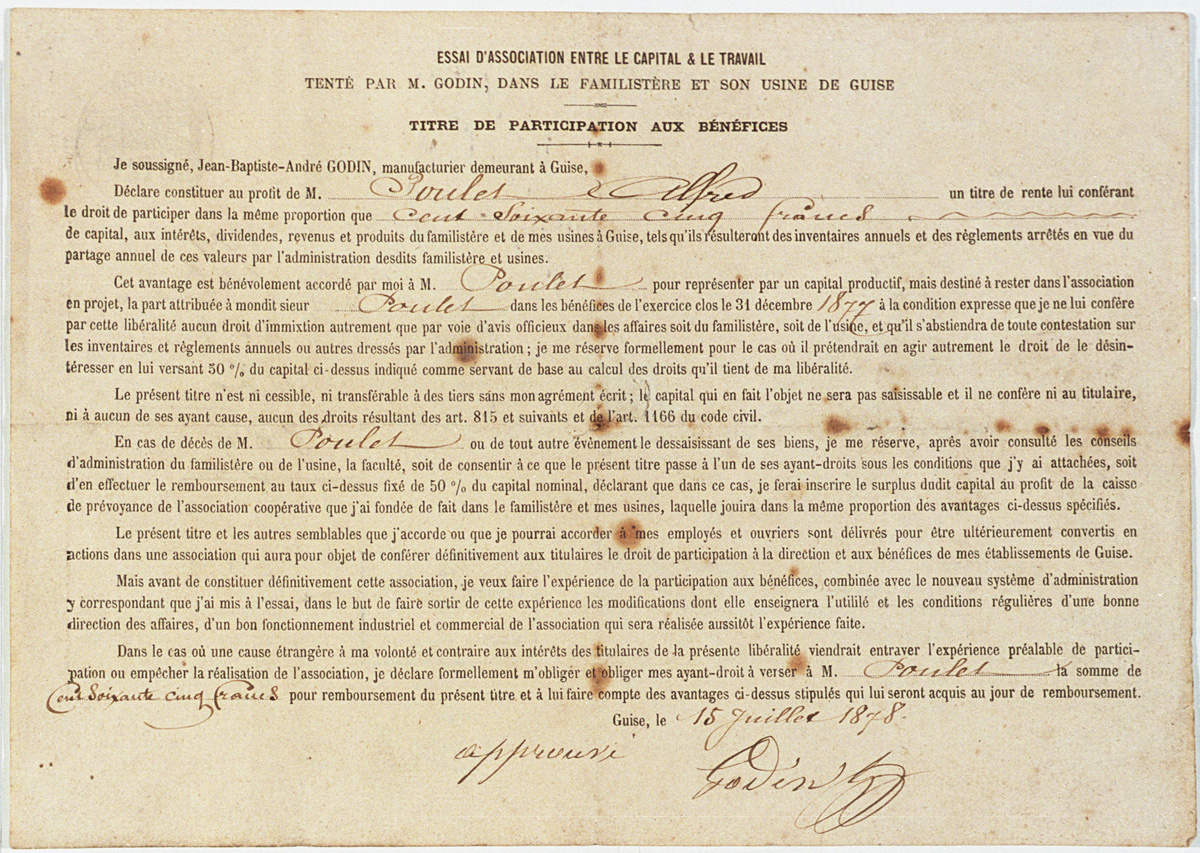 ESSAI D'ASSOCIATION ENTRE LE CAPITAL & LE TRAVAIL
TENTÉ PAR M. GODIN, DANS LE FAMILISTÈRE ET SON USINE DE GUISE
TITRE DE PARTICIPATION AUX BÉNÉFICES
Je soussigné, Jean-Baptiste-André GODIN, manufacturier demeurant à Guise,
Déclare constituer au profit de M. Poulet Alfred un titre de rente lui conférant
le droit de participer dans la même proportion que cent soixante cinq francs
de capital, aux intérêts, dividendes, revenus et produits du familistère et de mes usines à Guise, tels qu'ils résulteront des inventaires annuels et des règlements arrêtés en vue du
partage annuel de ces valeurs par l'administration desdits familistère et usines.
Cet avantage est bénévolement accordé par moi à M. Poulet pour représenter par un capital productif, mais destiné à rester dans l'association
en projet, la part attribuée à mondit sieur Poulet dans les bénéfices de l'exercice clos le 31 décembre 1877 à la condition expresse que je ne lui confère
par cette libéralité aucun droit d'immixtion autrement que par voie d'avis officieux dans les affaires soit du familistère, soit de l'usine, et qu'il s'abstiendra de toute contestation sur
les inventaires et règlements annuels ou autres dressés par l'administration ; je me réserve formellement pour le cas où il prétendrait en agir autrement le droit de le désin-
téresser en lui versant 50 % du capital ci-dessus indiqué comme servant de base au calcul des droits qu'il tient de ma libéralité.
Le présent titre n'est ni cessible, ni transférable à des tiers sans mon agrément écrit ; le capital qui en fait l'objet ne sera pas saisissable et il ne confère ni au titulaire,
ni à aucun de ses ayant cause, aucun des droits résultant des art. 815 et suivants et de l'art. 1166 du code civil.
En cas de décès de M. Poulet ou de tout autre évènement le dessaisissant de ses biens, je me réserve, après avoir consulté les conseils
d'administration du familistère ou de l'usine, la faculté, soit de consentir à ce que le présent titre passe à l'un de ses ayant-droits sous les conditions que j'y ai attachées, soit
d'en effectuer le remboursement au taux ci-dessus fixé de 50 % du capital nominal, déclarant que dans ce cas, je ferai inscrire le surplus dudit capital au profit de la caisse
de prévoyance de l'association coopérative que j'ai fondée de fait dans le familistère et mes usines, laquelle jouira dans la même proportion des avantages ci-dessus spécifiés.
Le présent titre et les autres semblables que j'accorde ou que je pourrai accorder à mes employés et ouvriers sont délivrés pour être ultérieurement convertis en
actions dans une association qui aura pour objet de conférer définitivement aux titulaires le droit de participation à la direction et aux bénéfices de mes établissements de Guise.
Mais avant de constituer définitivement cette association, je veux faire l'expérience de la participation aux bénéfices, combinée avec le nouveau système d'administration
y correspondant que j'ai mis à l'essai, dans le but de faire sortir de cette expérience les modifications dont elle enseignera l'utililé et les conditions régulières d'une bonne
direction des affaires, d'un bon fonctionnement industriel et commercial de l'association qui sera réalisée aussitôt l'expérience faite.
Dans le cas où une cause étrangère à ma volonté et contraire aux intérêts des titulaires de la présente libéralité viendrait entraver l'expérience préalable de partici-
pation ou empêcher la réalisation de l'association, je déclare formellement m'obliger et obliger mes ayant-droit à verser à M. Poulet la somme de
Cent soixante cinq francs pour remboursement du présent titre et à lui faire compte des avantages ci-dessus stipulés qui lui seront acquis au jour de remboursement.
Guise, le 15 Juillet 1878.
approuvé
Godin